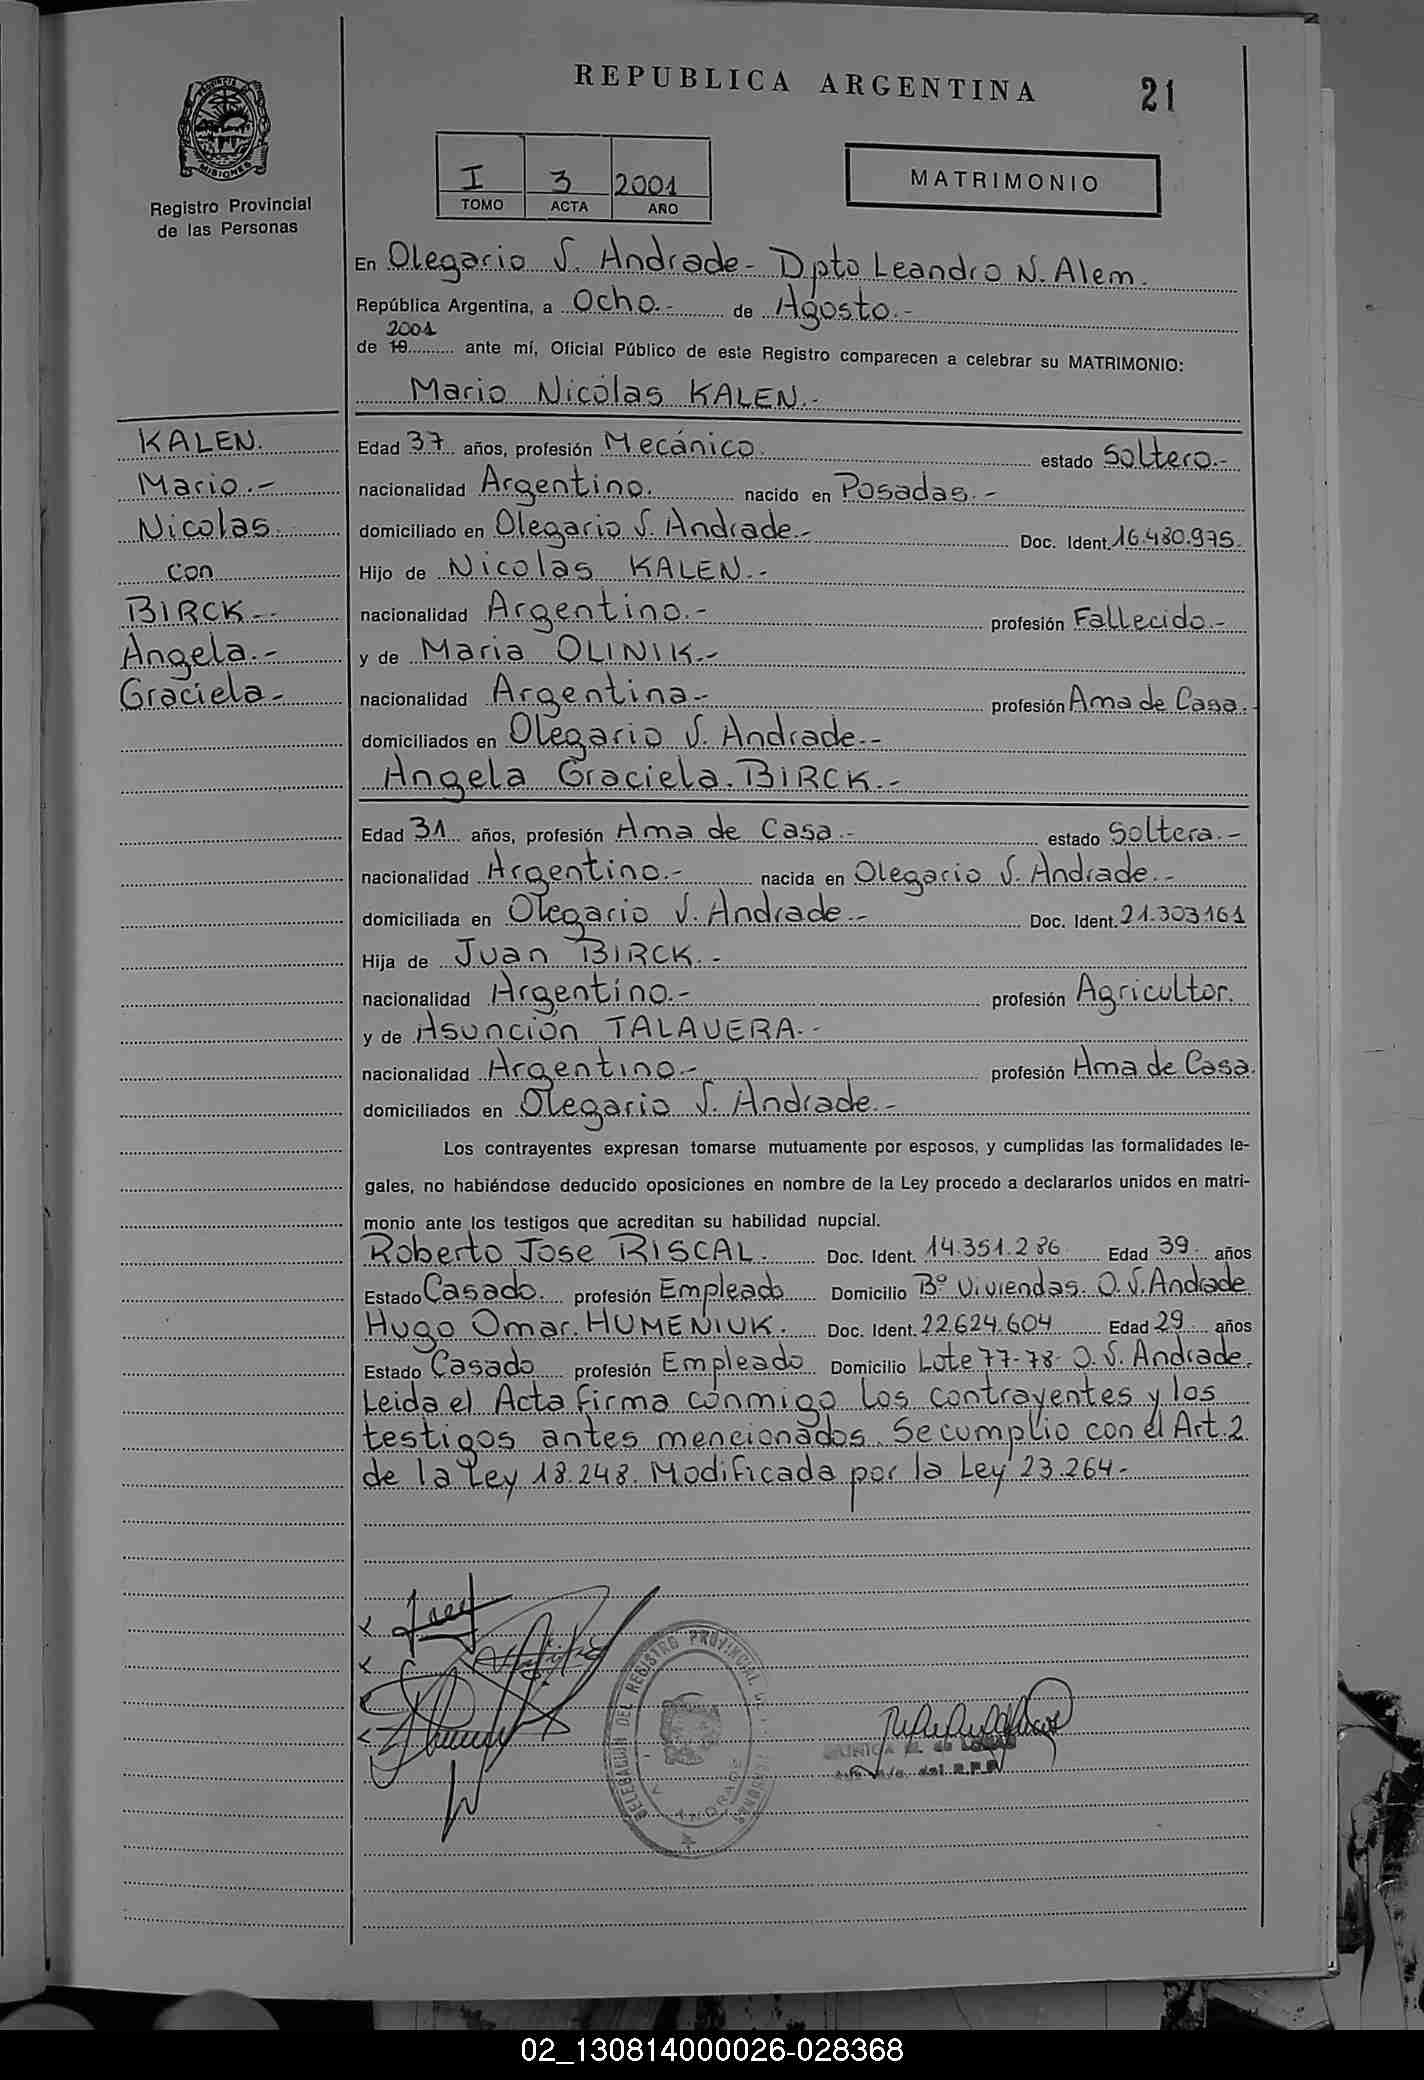 REPUBLICA ARGENTINA
21
PROVINCIA DE MISIONES
Registro Provincial
de las Personas
I 3 2001
TOMO ACTA AÑO
MATRIMONIO
En Olegario V. Andrade - Dpto Leandro N. Alem.
República Argentina, a Ocho.- de Agosto.-
2001
de 19 ante mí, Oficial Público de este Registro comparecen a celebrar su MATRIMONIO:
Mario Nicólas KALEN.-
KALEN.
Mario.-
Nicolas.
con
BIRCK.-
Angela.-
Graciela-
Edad 37 años, profesión Mecánico. estado Soltero.-
nacionalidad Argentino. nacido en Posadas.-
domiciliado en Olegario V. Andrade.- Doc. Ident. 16.480.975.
Hijo de Nicolas KALEN.-
nacionalidad Argentino.- profesión Fallecido.-
y de Maria OLINIK.-
nacionalidad Argentina.- profesión Ama de Casa.
domiciliados en Olegario V. Andrade.-
Angela Graciela. BIRCK.-
Edad 31 años, profesión Ama de Casa.- estado Soltera.-
nacionalidad Argentino.- nacida en Olegario V. Andrade.-
domiciliada en Olegario V. Andrade.- Doc. Ident. 21.303.161
Hija de Juan BIRCK.-
nacionalidad Argentino.- profesión Agricultor.
y de Asunción TALAVERA.-
nacionalidad Argentino.- profesión Ama de Casa.
domiciliados en Olegario V. Andrade.-
Los contrayentes expresan tomarse mutuamente por esposos, y cumplidas las formalidades le-
gales, no habiéndose deducido oposiciones en nombre de la Ley procedo a declararlos unidos en matri-
monio ante los testigos que acreditan su habilidad nupcial.
Roberto Jose RISCAL. Doc. Ident. 14.351.286 Edad 39 años
Estado Casado. profesión Empleado Domicilio Bº Viviendas. O.V. Andrade
Hugo Omar. HUMENIUK. Doc. Ident. 22.624.604 Edad 29 años
Estado Casado profesión Empleado Domicilio Lote 77-78- O.V. Andrade.
Leida el Acta firma conmigo los contrayentes y los
testigos antes mencionados. Se cumplio con el Art. 2
de la Ley 18.248. Modificada por la Ley 23.264-
DELEGACION DEL REGISTRO PROVINCIAL
V. ANDRADE
del R.P.P.
02_130814000026-028368